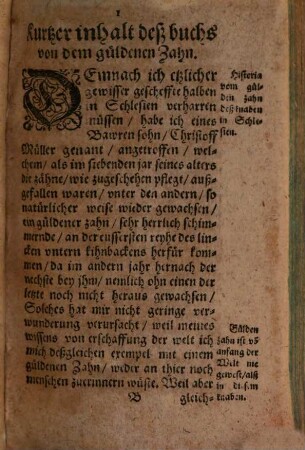 1
Kurtzer inhalt deß buchs
von dem güldenen Zahn.
DEinnach ich etzlicher
gewisser gescheffte halben
in Schlesien verharren
müssen / habe ich eines
Bawren sohn / Christoff
Müller genant / angetroffen / wel-
chem / als im siebenden jar seines alters
die zähne / wie zugeschehen pflegt / auß-
gefallen waren / vnter den andern / so
natürlicher weise wieder gewachsen /
ein güldener zahn / sehr herrlich schim-
mernde / an der eussersten reyhe des lin-
cken vntern kihnbackens herfür kom-
men / da im andern jahr hernach der
nechste bey jhm / nemlich ohn einen der
letzte noch nicht heraus gewachsen /
Solches hat mir nicht geringe ver-
wunderung verursacht / weil meines
wissens von erschaffung der welt ich
mich deßgleichen exempel mit einem
güldenen Zahn / weder an thier noch
menschen zuerinnern wüste. Weil aber
B gleich-
Historia
vom gül-
den zahn
deß knaben
in Schle-
sien.
Gülden
zahn ist võ
anfang der
Welt nie
gewest / als
in disem
knaben.